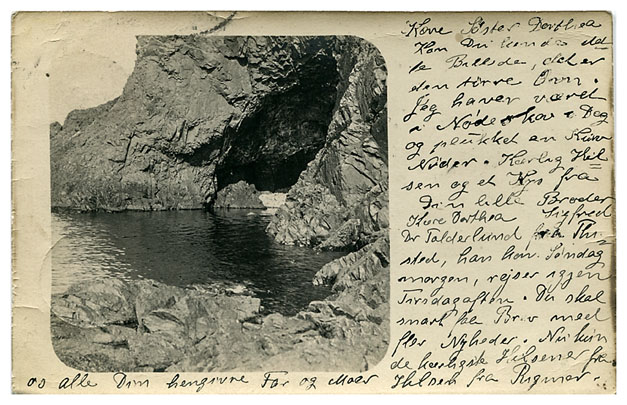 Kære Søster Dorthea
Kan Du kende det-
te Billede, det er
den tørre Ovn.
Jeg haver været
i Nødeskov i Dag
og plukket en Kurv
Nødder. Kærlig Hil-
sen og et Kys fra
Din lille Broder
Kære Dorthea Sigfred
Dr Tolderlund fra Thi-
sted, han kom Søndag
morgen, rejser igjen
Tirsdagaften. Du skal
snart faa Brev med
fler Nyheder. Nu kun
de kærligste Hilsener fra
os alle Din hengivne Far og Moer
Hilsen fra Rigmor.